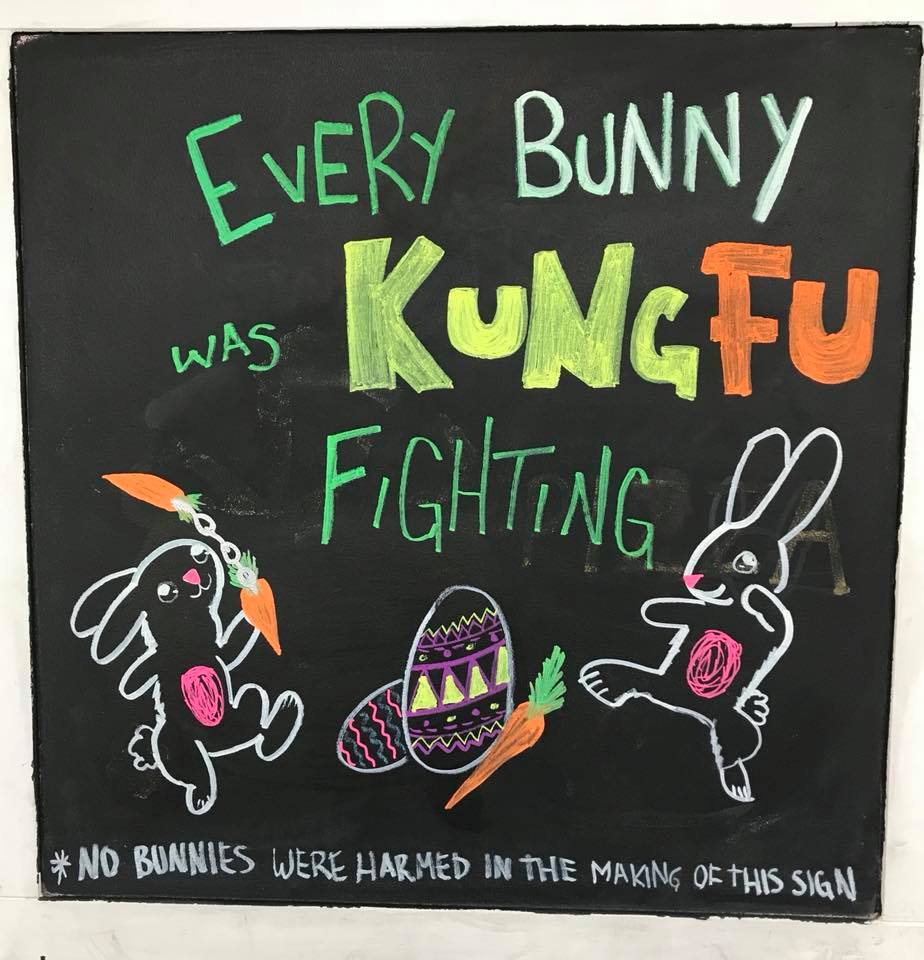 EVERY BUNNY
WAS KUNG FU
FIGHTING
*NO BUNNIES WERE HARMED IN THE MAKING OF THIS SIGN